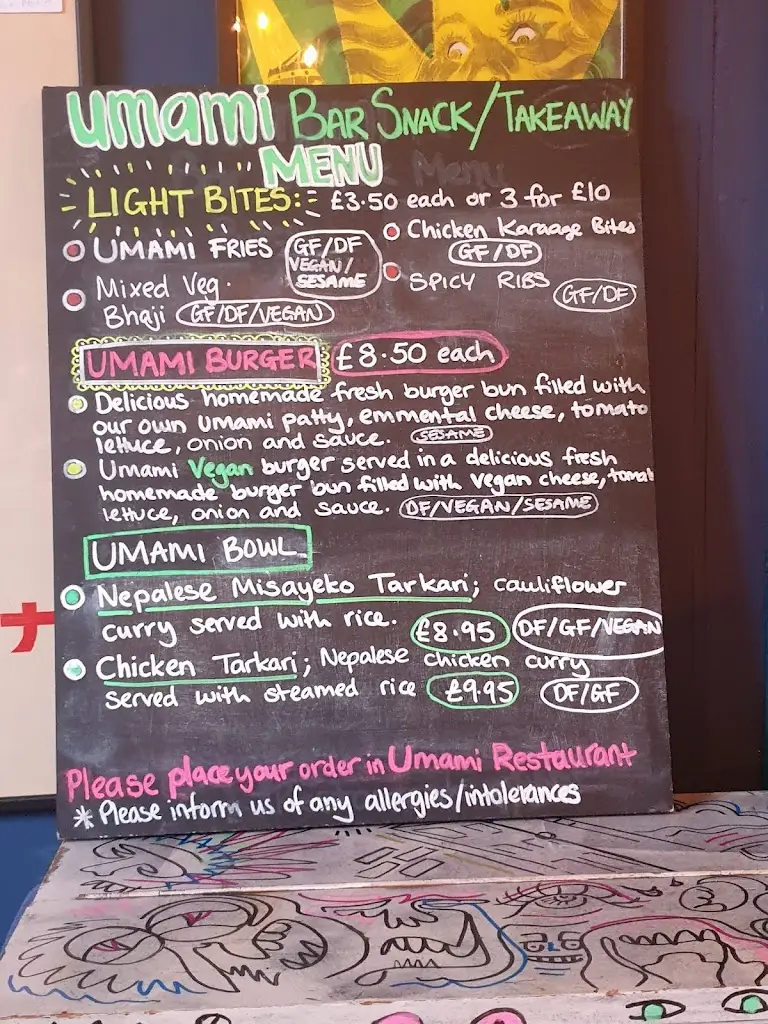 umami BAR SNACK/TAKEAWAY
MENU
LIGHT BITES:- £3.50 each or 3 for £10
UMAMI FRIES GF/DF VEGAN/ SESAME
Chicken Karaage Bites GF/DF
Mixed Veg.
Bhaji GF/DF/VEGAN
SPICY RIBS GF/DF
UMAMI BURGER £8.50 each
Delicious homemade fresh burger bun filled with
our own umami patty, emmental cheese, tomato
lettuce, onion and sauce. SESAME
Umami Vegan burger served in a delicious fresh
homemade burger bun filled with vegan cheese, tomat
lettuce, onion and sauce. DF/VEGAN/SESAME
UMAMI BOWL
Nepalese Misayeko Tarkari; cauliflower
curry served with rice. £8.95 DF/GF/VEGAN
Chicken Tarkari; Nepalese chicken curry
served with steamed rice £9.95 DF/GF
Please place your order in Umami Restaurant
* Please inform us of any allergies/intolerances
ナ